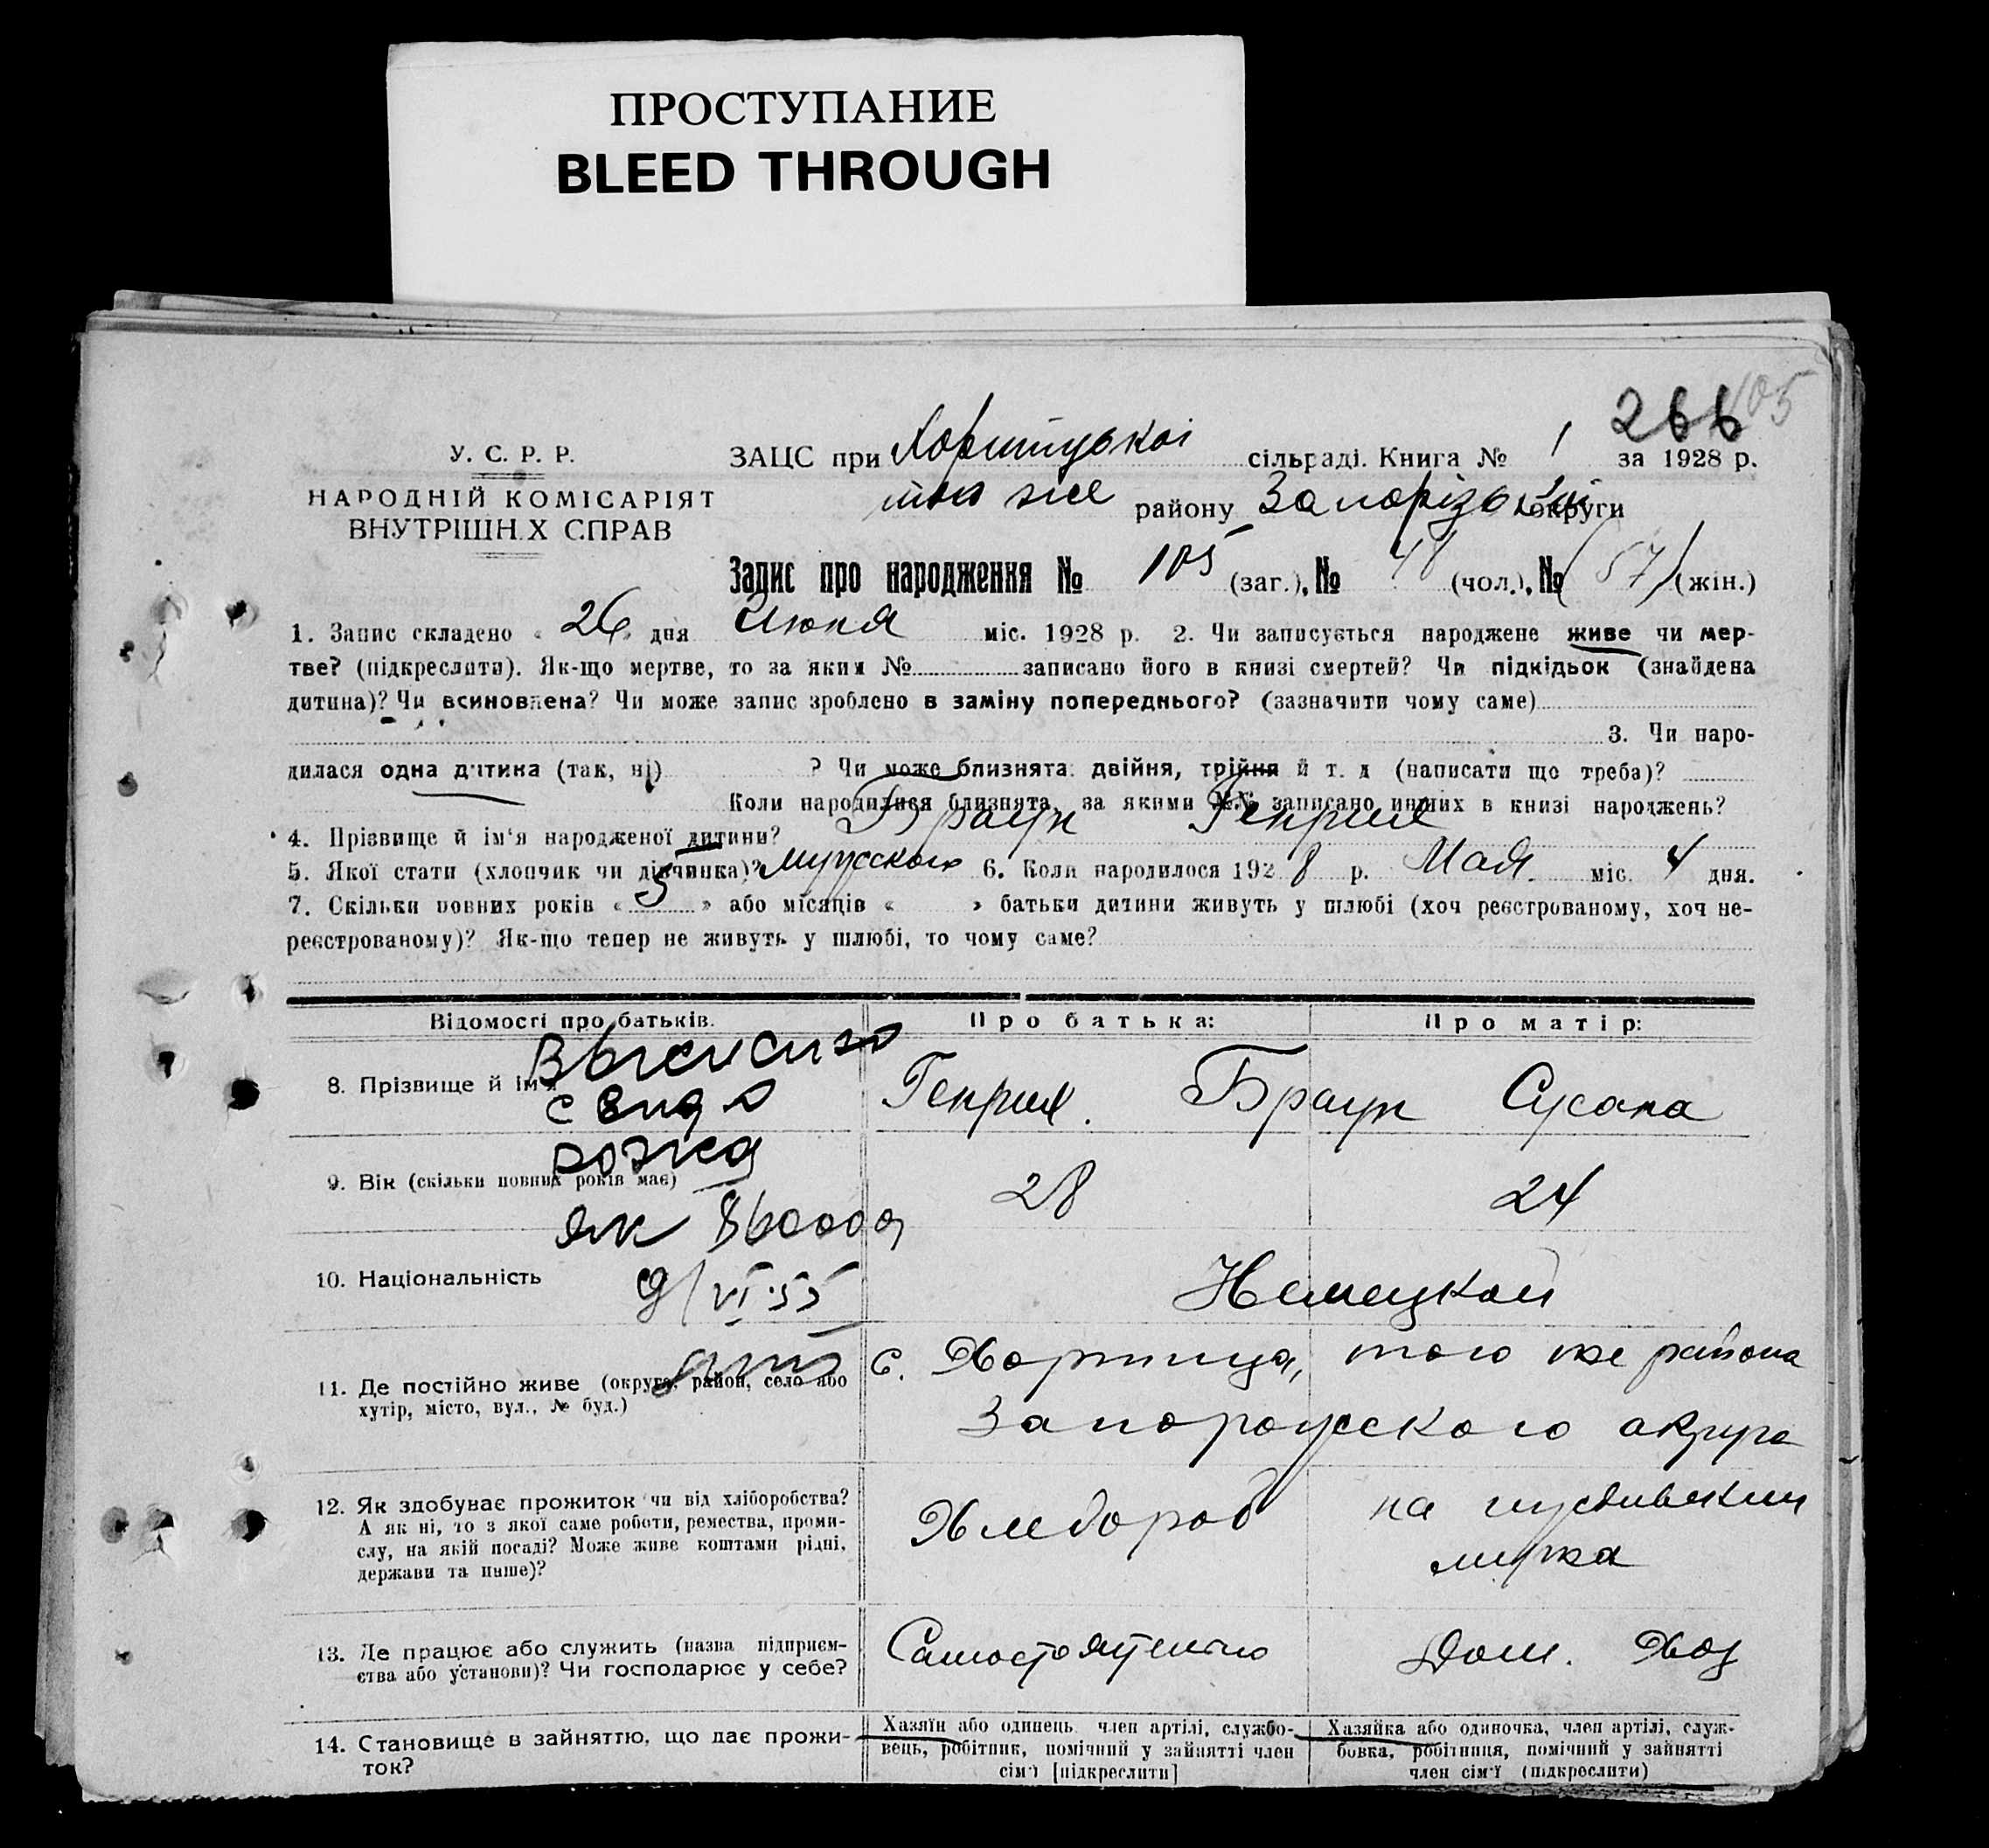 ПРОСТУПАНИЕ
BLEED THROUGH
266 105
У. С. Р. Р.
НАРОДНІЙ КОМІСАРІЯТ
ВНУТРІШН.Х СПРАВ
ЗАЦС при Хортицькоі сільраді. Книга № 1 за 1928 р.
того же району Запорізькоі округи
Запис про народження № 105 (заг.), № 48 (чол.), № (57) (жін.)
1. Запис складено « 26 » дня Июня міс. 1928 р. 2. Чи записується народжене живе чи мер-
тве? (підкреслити). Як-що мертве, то за яким № записано його в книзі смертей? Чи підкідьок (знайдена
дитина)? Чи всиновлена? Чи може запис зроблено в заміну попереднього? (зазначити чому саме)
3. Чи наро-
дилася одна дитина (так, ні) ? Чи може близнята: двійня, трійня й т. д (написати що треба)?
Коли народилися близнята, за якими №№ записано инших в книзі народжень?
4. Прізвище й ім'я народженої дитини? Браун Генрих
5. Якої стати (хлопчик чи дівчинка)? мужского 6. Коли народилося 1928 р. Мая міс. 4 дня.
7. Скільки повних років « 5 » або місяців « » батьки дитини живуть у шлюбі (хоч реєстрованому, хоч не-
реєстрованому)? Як-що тепер не живуть у шлюбі, то чому саме?
Відомості про батьків. Про батька: Про матір:
8. Прізвище й ім'я Генрих. Браун Сусана
9. Вік (скільки повних років має) 28 24
10. Національність Немецкой
9/VI-55
11. Де постійно живе (округа, район, село або
хутір, місто, вул., № буд.)
с. Хортица, того же района
Запорожского округа
12. Як здобуває прожиток чи від хліборобства?
А як ні, то з якої саме роботи, ремества, проми-
слу, на якій посаді? Може живе коштами рідні,
держави та инше)?
Хлебороб
на иждивении
мужа
13. Де працює або служить (назва підприєм-
ства або установи)? Чи господарює у себе?
Самостоятельно Дом. Хоз
14. Становище в зайняттю, що дає прожи-
ток?
Хазяїн або одинець член артілі, службо-
вець, робітник, помічний у зайнятті член
сім'ї [підкреслити]
Хазяйка або одиночка, член артілі, служ-
бовка, робітниця, помічний у зайнятті
член сім'ї (підкреслити)